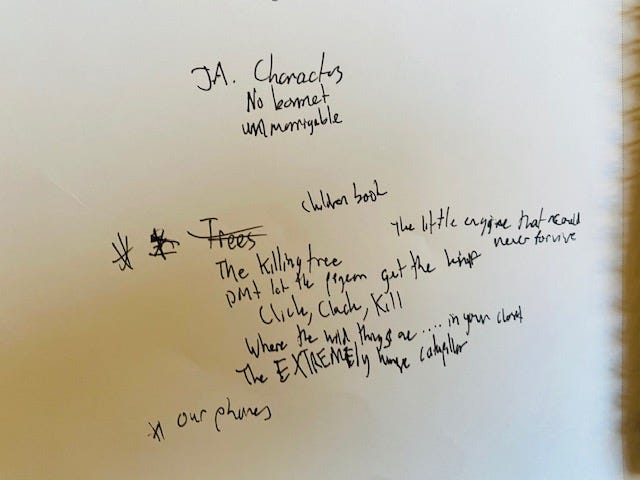 J.A. Characters
No bonnet
unmarriageable
children book
Trees
The little engine that could
never forgive
The Killing tree
Dont let the pigeon get the
Click, Clack, Kill
Where the wild things are .... in your closet
The EXTREMEly hungry caterpillar
our phones